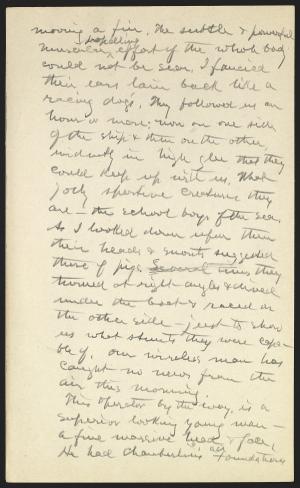 moving a fin. The subtle & powerful
propelling
muscular effort of the whole body
could not be seen. I fancied
their ears lain back like a
racing dogs. They followed us an
hour or more; now on one side
of the ship & then on the other,
evidently in high glee that they
could keep up with us. What
jolly sportive creatures they
are – the school boys of the sea.
As I looked down upon them
their heads & snouts suggested
those of pigs. Several times they
turned at right angles & dived
under the boat & raced on
the other side – just to show
us what stunts they were capa-
ble of. Our wireless man has
caught no news from the
air this morning.
This operator by the way, is a
superior looking young man –
a fine massive head & face,
He had Chamberlin's, Foundations